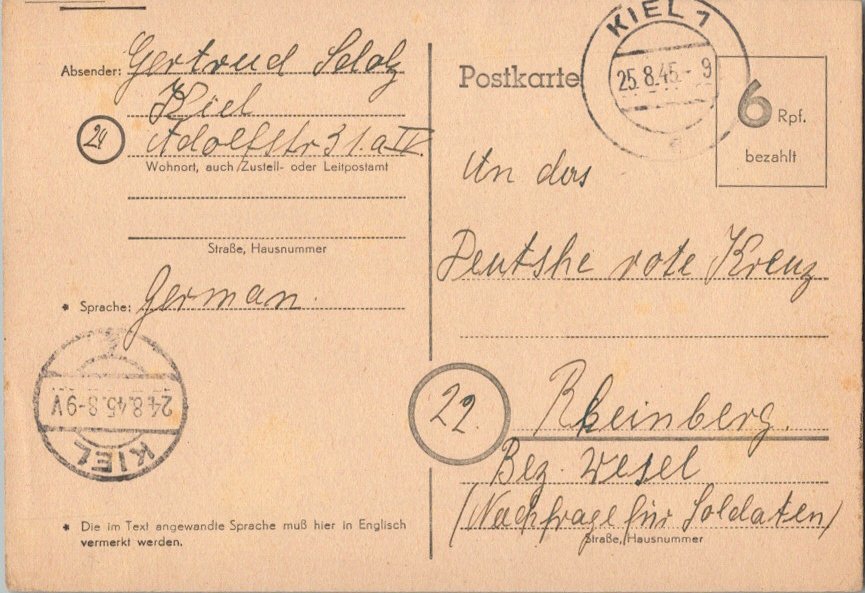 Absender: Gertrud Scholz
Kiel
24 Adolfstr 31.a IV.
Wohnort, auch Zustell- oder Leitpostamt
Straße, Hausnummer
* Sprache: German.
KIEL
24.8.45.8-9V
* Die im Text angewandte Sprache muß hier in Englisch
vermerkt werden.
Postkarte
KIEL 1
25.8.45.- 9
6 Rpf.
bezahlt
An das
Deutshe rote Kreuz
22. Rheinberg.
Bez. Wesel
(Nachfrage für Soldaten)
Straße, Hausnummer